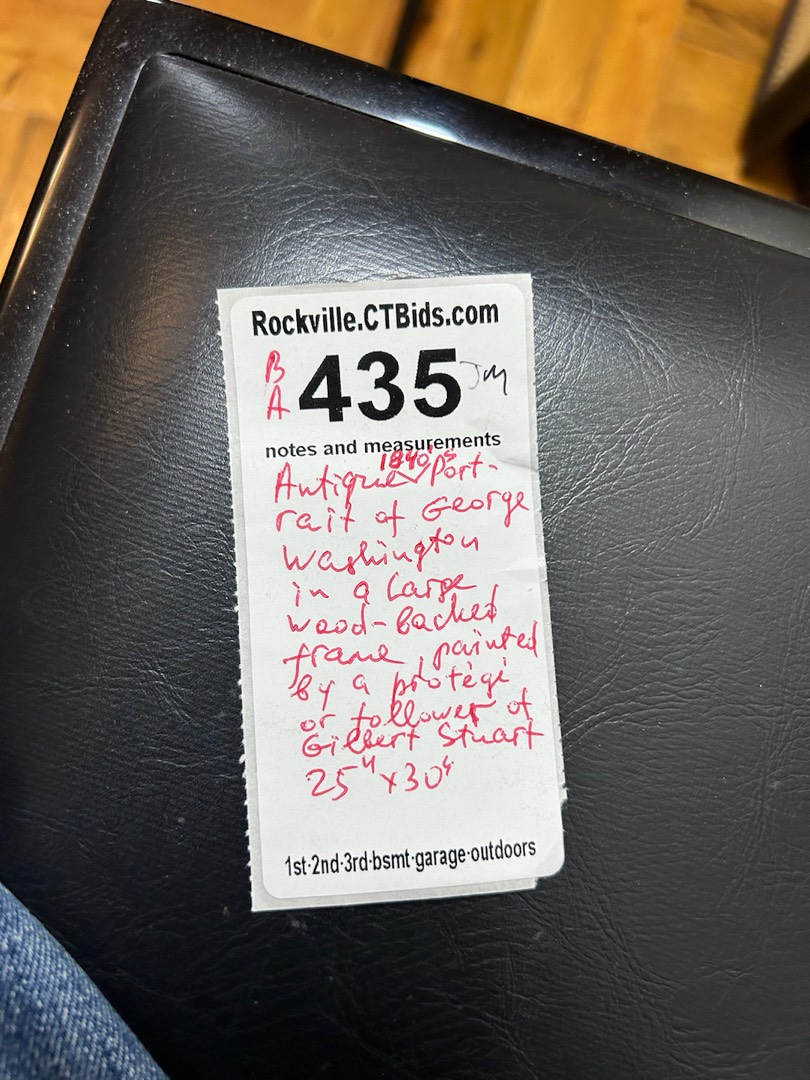 Rockville.CTBids.com
B
A 435 Jm
notes and measurements
1840's
Antique Port-
rait of George
Washington
in a large
wood-backed
frame, painted
by a protègè
or follower of
Gilbert Stuart
25" x 30"
1st·2nd·3rd·bsmt·garage·outdoors